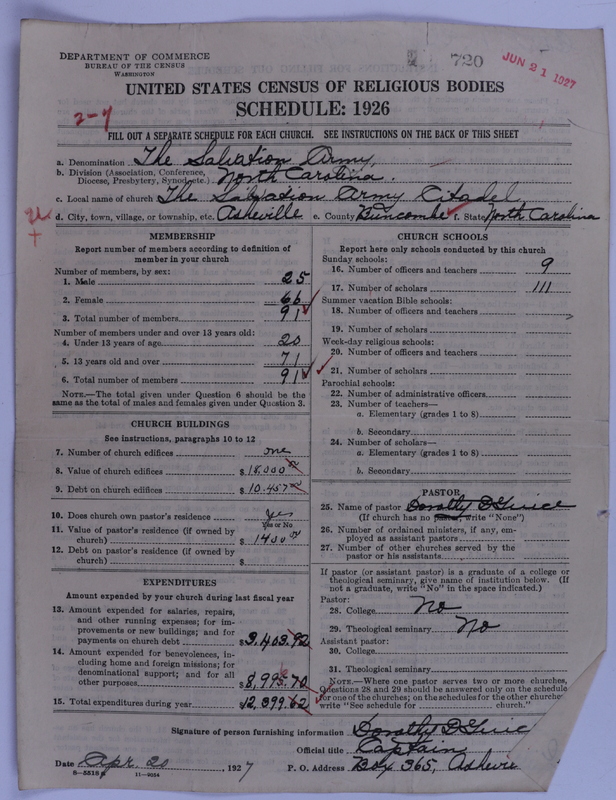 DEPARTMENT OF COMMERCE
BUREAU OF THE CENSUS
WASHINGTON
720
JUN 21 1927
UNITED STATES CENSUS OF RELIGIOUS BODIES
SCHEDULE: 1926
2-4
FILL OUT A SEPARATE SCHEDULE FOR EACH CHURCH. SEE INSTRUCTIONS ON THE BACK OF THIS SHEET
a. Denomination The Salvation Army
b. Division (Association, Conference, Diocese, Presbytery, Synod, etc.) North Carolina.
c. Local name of church The Salvation Army Citadel
d. City, town, village, or township, etc. Asheville e. County Buncombe f. State North Carolina
MEMBERSHIP
Report number of members according to definition of
member in your church
Number of members, by sex:
1. Male 25
2. Female 66
3. Total number of members 91
Number of members under and over 13 years old:
4. Under 13 years of age 20
5. 13 years old and over 71
6. Total number of members 91
NOTE.—The total given under Question 6 should be
same as the total of males and females given under Question 3.
CHURCH BUILDINGS
See instructions, paragraphs 10 to 12
7. Number of church edifices one
8. Value of church edifices $ 18,000
9. Debt on church edifices $ 10,457
10. Does church own pastor's residence yes
Yes or No
11. Value of pastor's residence (if owned by
church) $ 1400
12. Debt on pastor's residence (if owned by
church) $
EXPENDITURES
Amount expended by your church during last fiscal year
13. Amount expended for salaries, repairs,
and other running expenses; for im-
provements or new buildings; and for
payments on church debt $3,403.92
14. Amount expended for benevolences, in-
cluding home and foreign missions; for
denominational support; and for all
other purposes $8,995.70
15. Total expenditures during year $12,399.62
CHURCH SCHOOLS
Report here only schools conducted by this church
Sunday schools:
16. Number of officers and teachers 9
17. Number of scholars 111
Summer vacation Bible schools:
18. Number of officers and teachers
19. Number of scholars
Week-day religious schools:
20. Number of officers and teachers
21. Number of scholars
Parochial schools:
22. Number of administrative officers
23. Number of teachers—
a. Elementary (grades 1 to 8)
b. Secondary
24. Number of scholars—
a. Elementary (grades 1 to 8)
b. Secondary
PASTOR
25. Name of pastor Dorothy
(If church has no pastor, write "None")
26. Number of ordained ministers, if any, em-
ployed as assistant pastors
27. Number of other churches served by the
pastor or his assistants
If pastor (or assistant pastor) is a graduate of a college or
theological seminary, give name of institution below. (If
not a graduate, write "No" in the space indicated.)
Pastor:
28. College No
29. Theological seminary No
Assistant pastor:
30. College
31. Theological seminary
NOTE.—Where one pastor serves two or more churches,
Questions 28 and 29 should be answered only on the schedule
for one of the churches; on the schedules for the other churches
write "See schedule for church."
Signature of person furnishing information Dorothy
Official title Captain
Date Apr. 20 1927 P. O. Address Box 365, Asheville
8-5518 11-9054